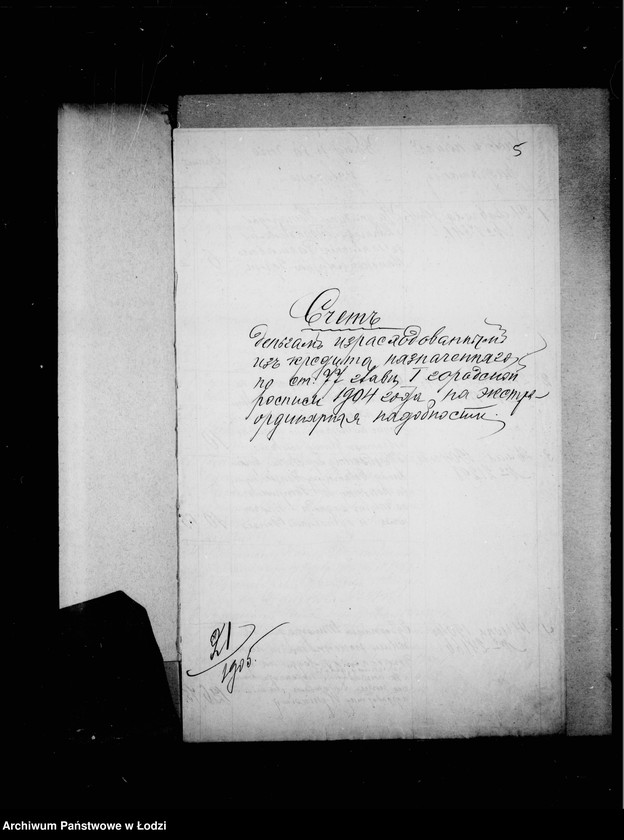 5
Счетъ
деньгамъ израсходованнымъ
изъ кредита, назначеннаго
по ст. 77 главы I городской
росписи 1904 года, на экстра-
ординарныя надобности.
21/1905.
Archiwum Państwowe w Łodzi